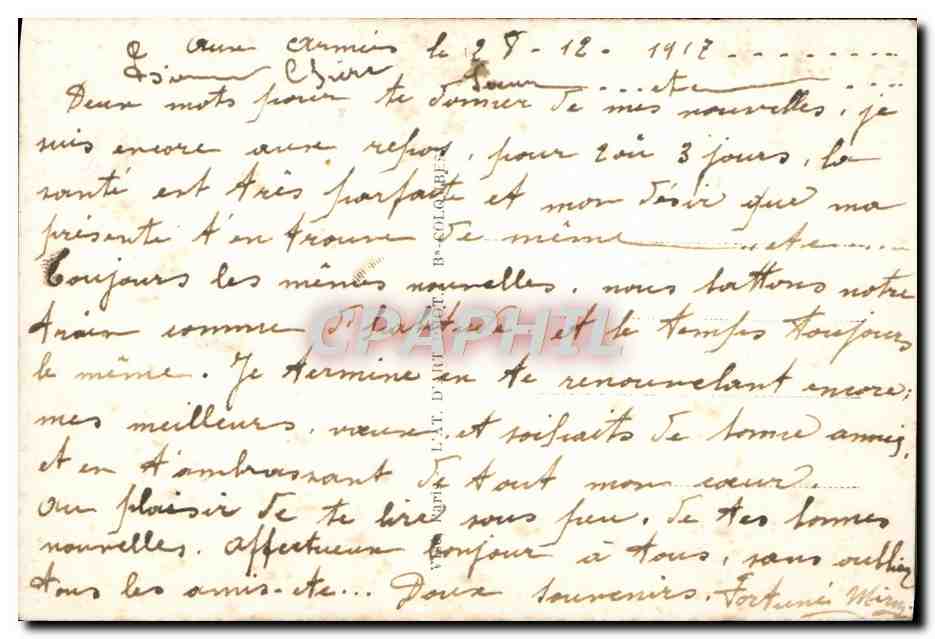 aux armées le 28-12-1917
Chère Soeur ... etc ...
Deux mots pour te donner de mes nouvelles, je
suis encore aux repos, pour 2 où 3 jours, la
santé est très parfaite et mon désir que ma
présente t'en trouve de même etc
Toujours les mêmes nouvelles, nous battons notre
train comme d'habitude et le temps toujours
le même. Je termine en te renouvelant encore;
mes meilleurs, voeux, et soihaits de bonne année,
et en t'embrassant de tout mon coeur.
au plaisir de te lire sous peu, de tes bonnes
nouvelles. affectueux bonjour à tous, sans oublier
tous les amis-etc... Doux souvenirs. Fortuné
L'AT. D'ART
Bs-COLOMBES
CPAPHIL